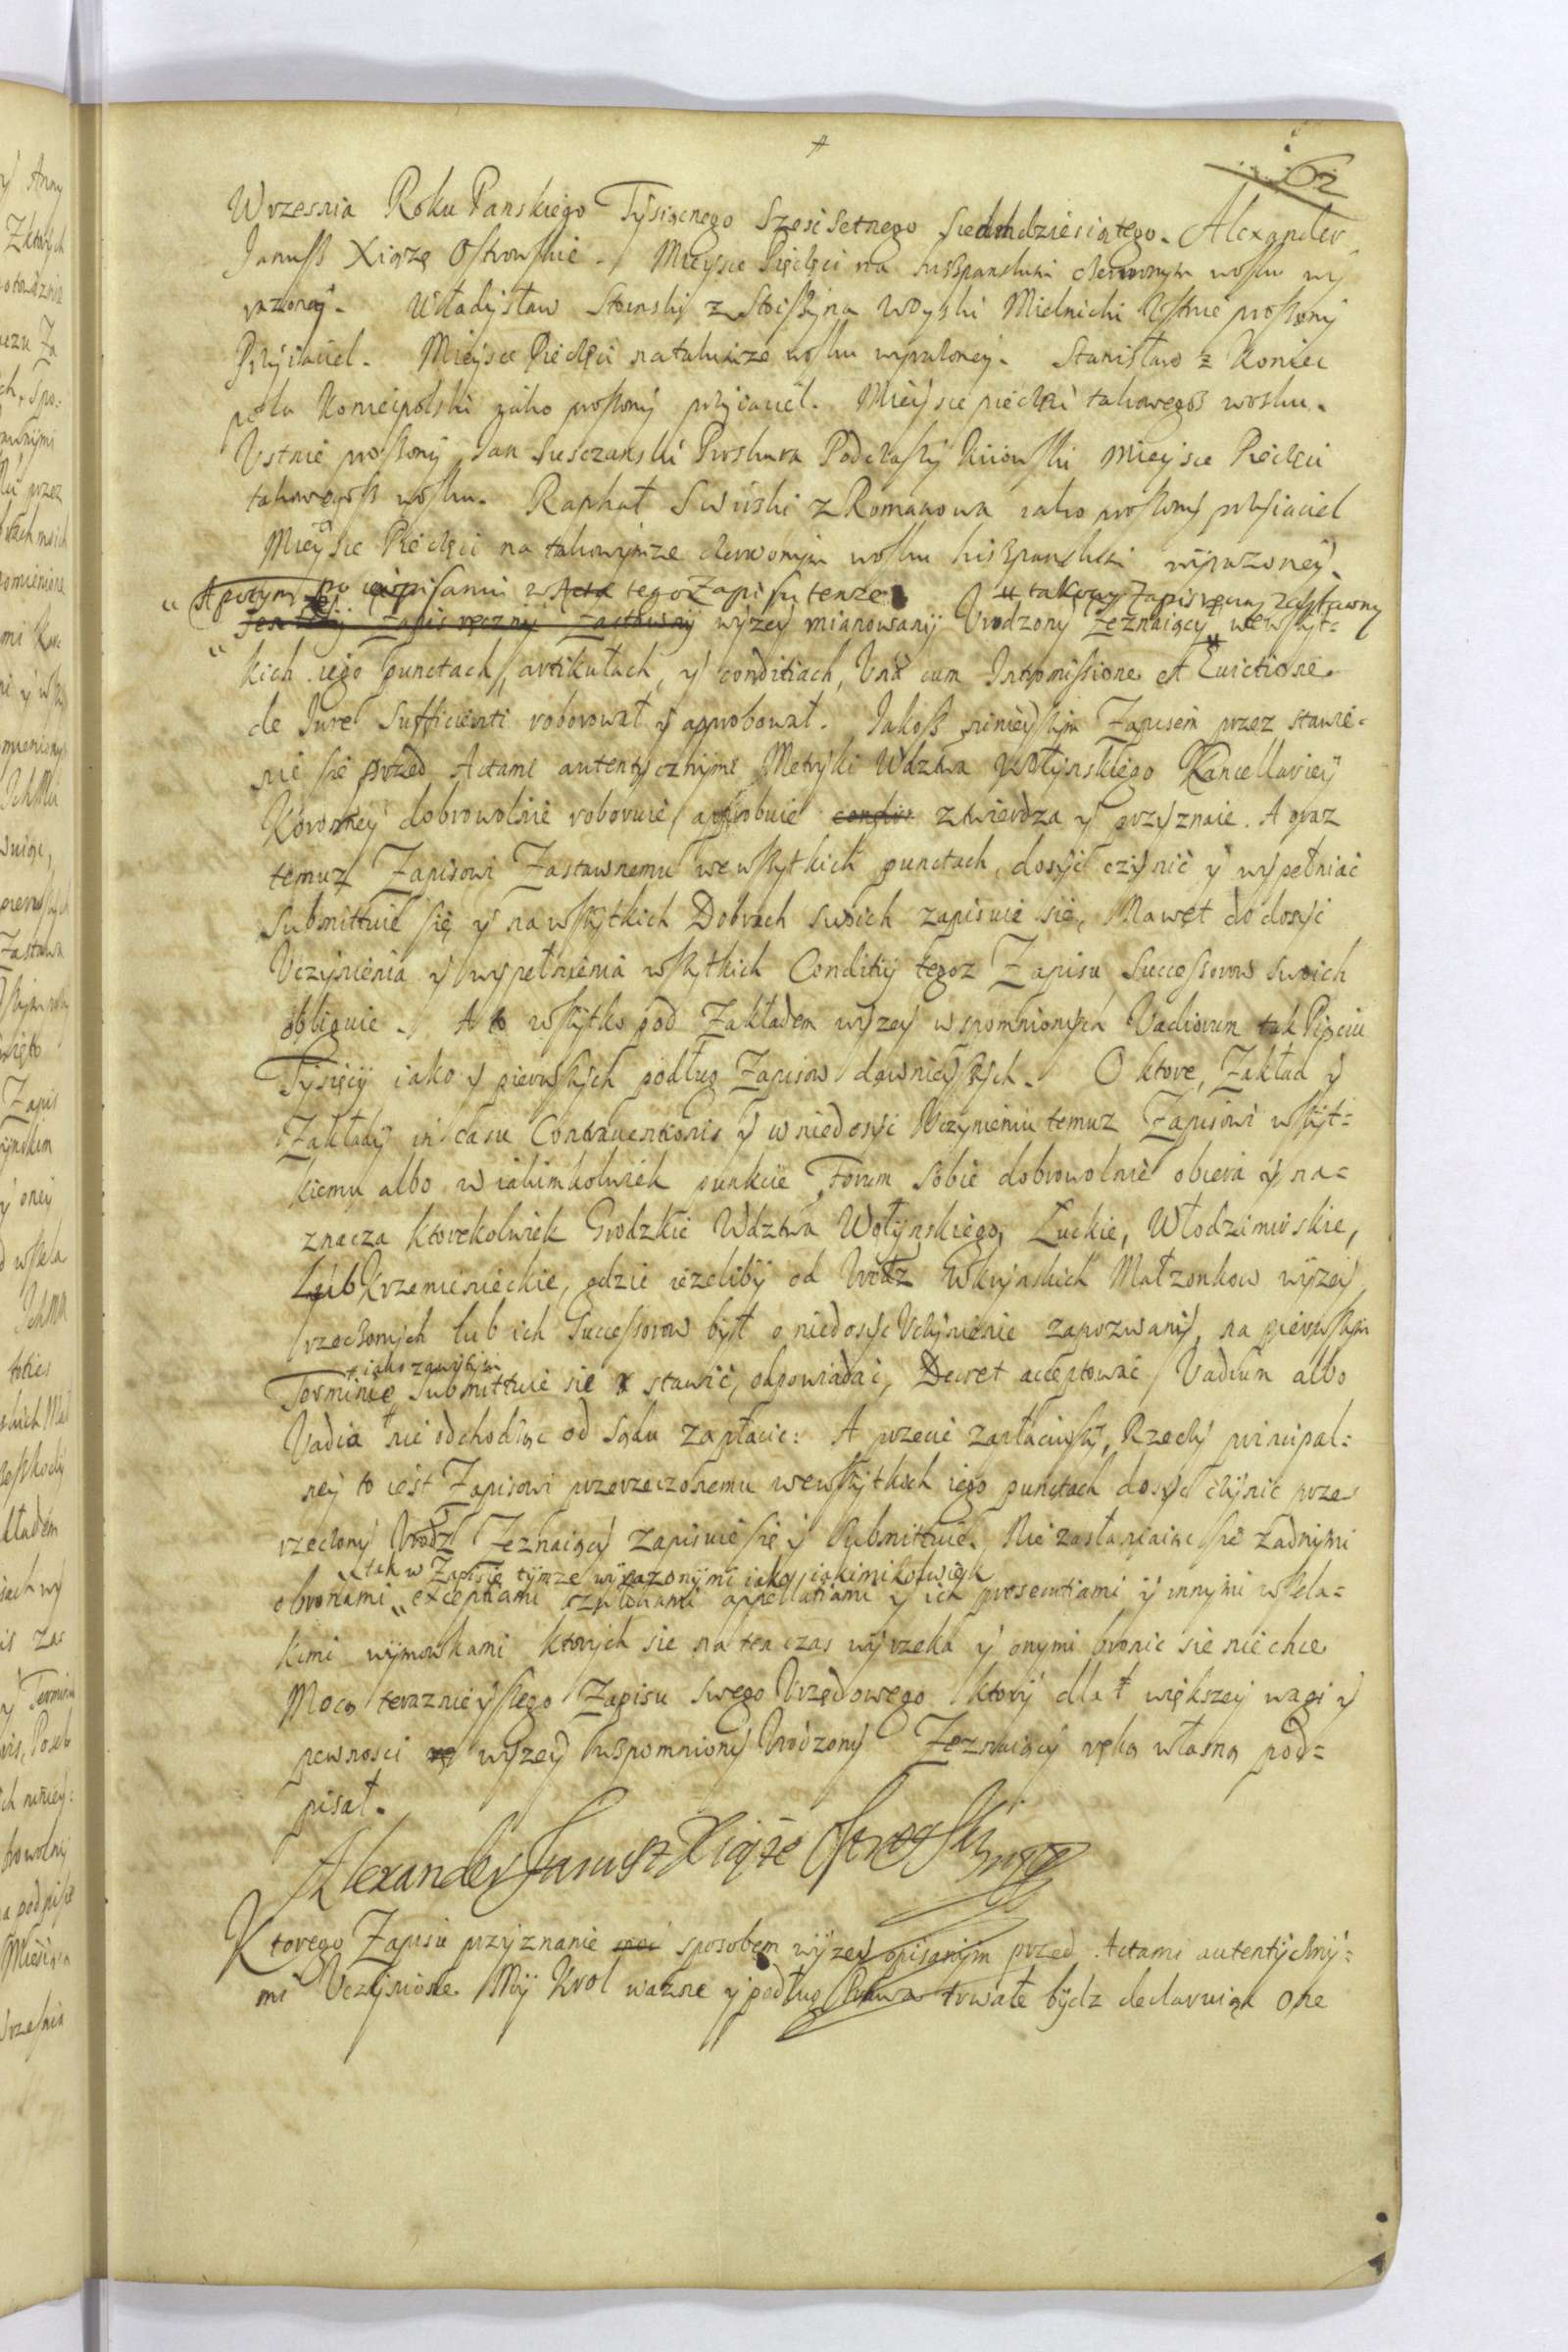 62
Wrzesnia Roku Panskiego Tysiącnego Szescsetnego Siedmdziesiątego. Alexander
Janusz Xiąze Ostrowskie. Mieysce Pieczęci na hiszpanskim czerwonym wosku wy
razoney. Władysław Stoinski z Stoiszyna Woyski Mielnicki Ustnie proszony
Przyiaciel. Mieysce Pieczęci na takimze wosku wyrazoney. Stanisław z Koniec
pola Koniecpolski iako proszony przyiaciel. Mieysce pieczęci takowegosz wosku.
Ustnie proszony Jan Susczanski Proskura Podczaszy Kiiowski Mieysce Pieczęci
takowegosz wosku. Raphał Swirski z Romanowa iako proszony przyiaciel
Mieysce Pieczęci na takowymze czerwonym wosku hiszpanskim wyrazoney.
A potym po wpisaniu w Acta tegoz Zapisu tenze u takowy Zapis ręczny zastawny
Zapis ręczny Zastawny wyzey mianowany Urodzony Zeznaiący we wszyt=
kich iego punctach, artikułach, y conditiach, Una cum Intromissione et Evictione
de Jure Sufficienti roborował y approbował. Jakosz ninieyszym Zapisem przez stawie=
nie sie przed Actami autentycznymi Metryki Wdztwa Wołynskiego Kancellariey
Koronney dobrowolnie roboruie, approbuie zwierdza y przyznaie. A oraz
temuz Zapisowi Zastawnemu we wszytkich punctach, dosyć czynić y wypełniać
submittuie się y na wszytkich Dobrach swoich zapisuie się, Nawet do dosyć
Uczynienia y wypełnienia wszytkich Conditiy tegoz Zapisu Successorow swoich
obliguie. A to wszytko pod Zakładem wyzey wspomnionych Vadiorum tak Pięciu
Tysięcy iako y pierwszych podług Zapisow dawnieyszych. O ktore, Zakład y
Zakłady in casu Contraventionis y w niedosyć Uczynieniu temuz Zapisowi wszyt=
kiemu albo w iakimkolwiek punkcie Forum sobie dobrowolnie obiera y na=
znacza ktorekolwiek Grodzkie Wdztwa Wołynskiego, Łuckie, Włodzimirskie,
Lub Krzemienieckie, gdzie iezeliby od Urodz Małzonkow wyzey
rzeczonych lub ich Successorow był o niedosyć Uczynienie zapozwany, na pierwszym
iako zawitym
Terminie submittuie się stawić, odpowiadać, Decret acceptować, Vadium albo
Vadia nie odchodząc od sądu zapłacić: A przecie zapłaciwszy, Rzeczy principal=
ney to iest Zapisowi przerzeczonemu we wszytkich iego punctach dosyć czynić prze
rzeczony Urodz Zeznaiący zapisuie się y submittuie. Nie zasłaniaiąc sie zadnymi
tak w Zapisie tymze wyrazonymi iako iakimikolwiek
obronami exceptiami appellatiami y ich prosecutiami y innymi wszela=
kimi wymowkami ktorych sie na ten czas wyrzeka y onymi bronic sie niechce
Mocą teraznieyszego Zapisu swego Urzędowego ktory dla większey wagi y
pewnosci wyzey wspomniony Urodzony Zeznaiący ręką własną pod=
pisał.
Alexander Janusz Xiąże Ostrogski mpp
Ktorego Zapisu przyznanie sposobem wyzey opisanym przed Actami autentyczny=
mi Uczynione My Krol wazne y podług Prawa trwałe bydz declaruiąc one